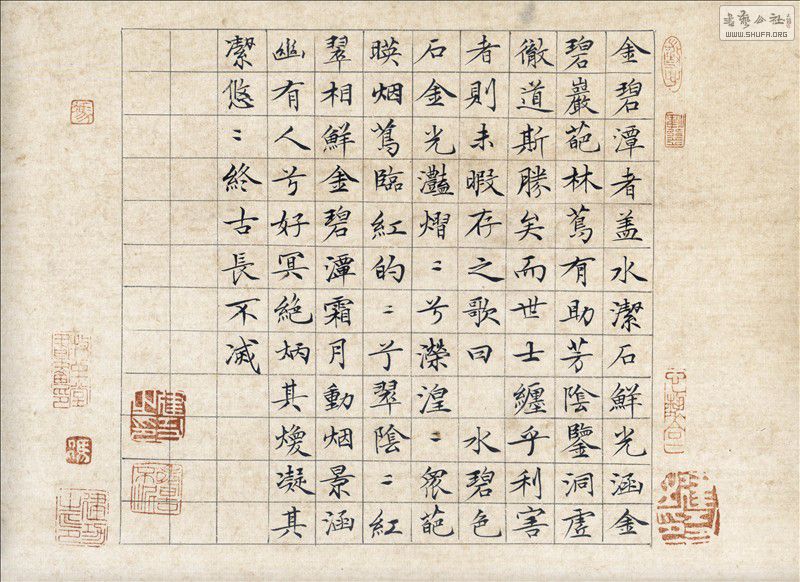 金碧潭者盖水潔石鮮光涵金
碧巖葩林蔦有助芳陰鑒洞虛
徹道斯勝矣而世士纏乎利害
者則未暇存之歌曰 水碧色
石金光灩熠〻兮濴湟〻泉葩
暎烟蔦臨紅的〻兮翠陰〻紅
翠相鮮金碧潭霜月動烟景涵
幽有人兮好冥絶炳其煥凝其
潔悠〻終古長不滅
WWW.SHUFA.ORG